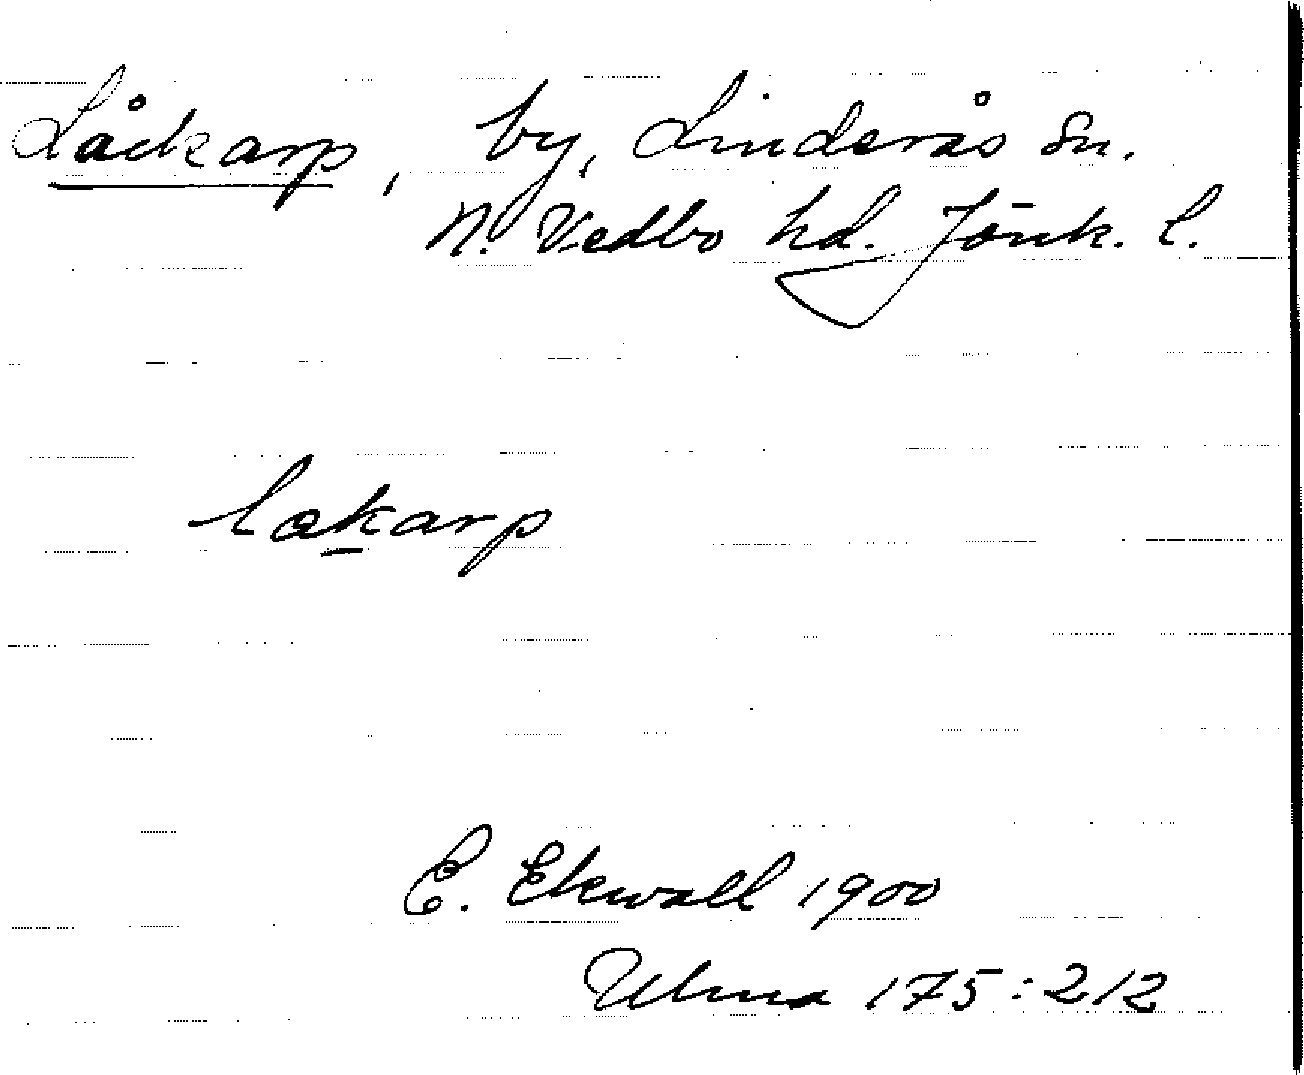 Låckarp, by, Linderås sn.
N. Vedbo hd. Jönk. l.
lakarp
E. Ekwall 1900
Ulma 175:212